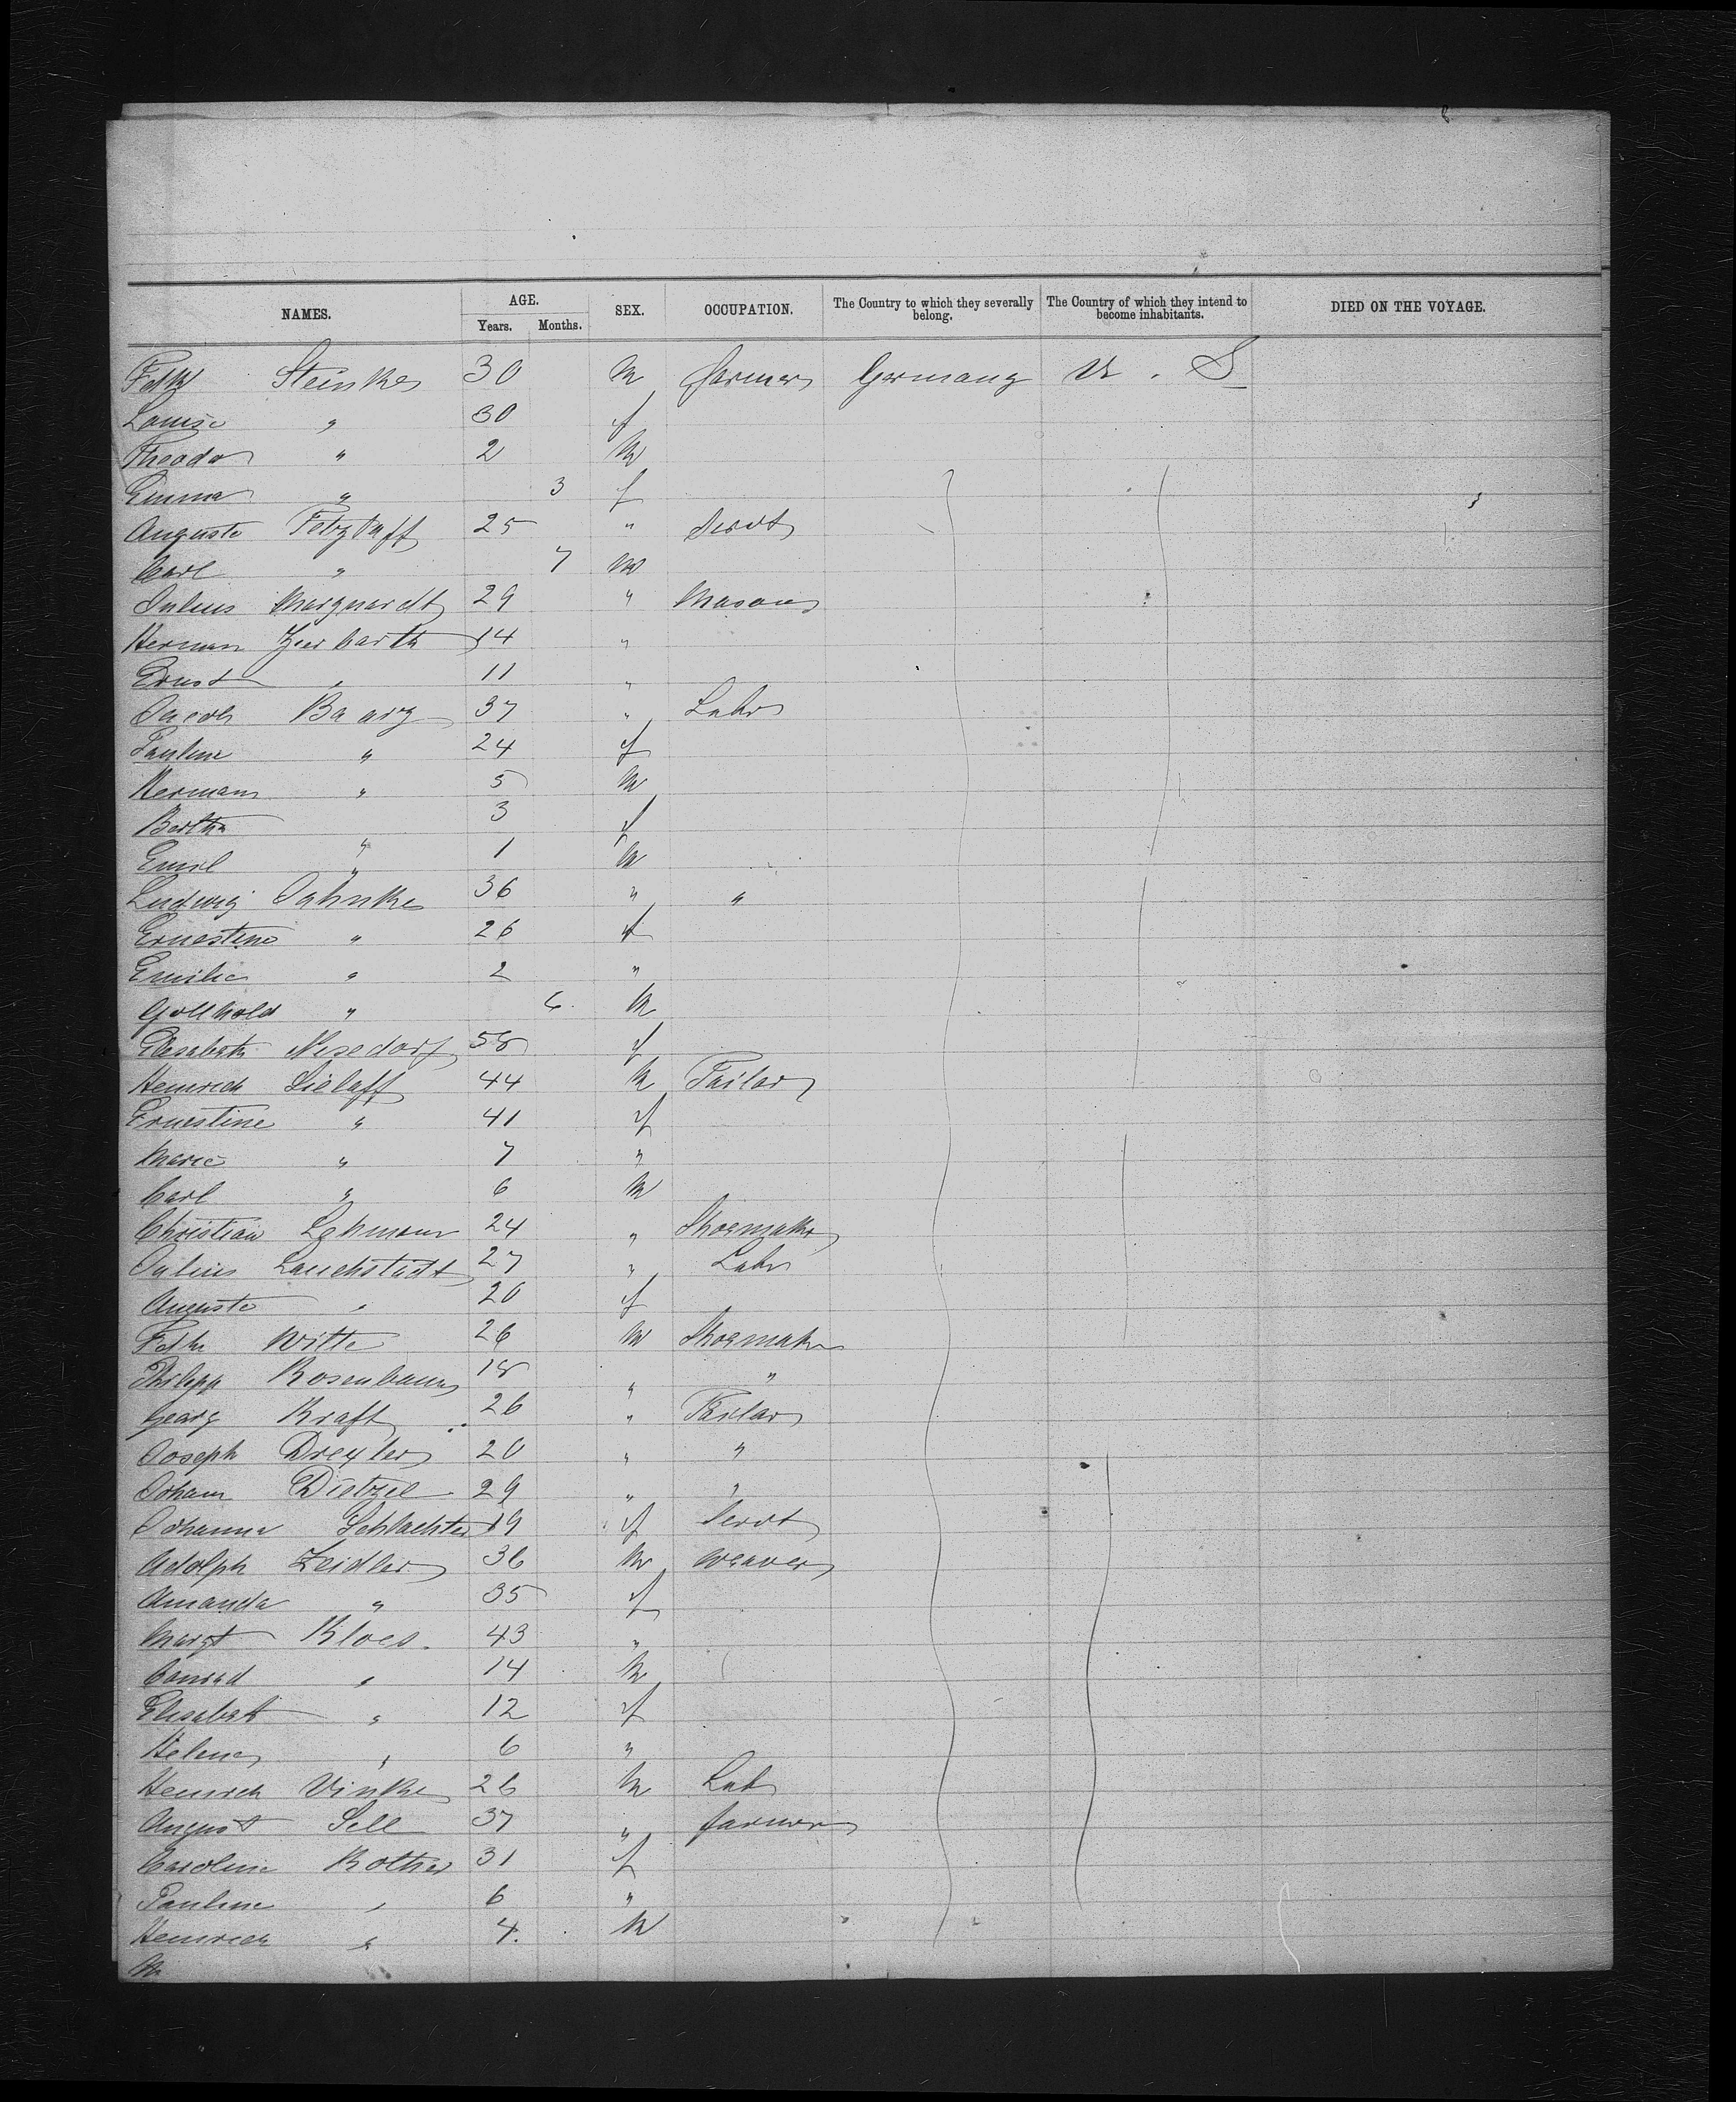 NAMES. AGE. Years. Months. SEX. OCCUPATION. The Country to which they severally belong. The Country of which they intend to become inhabitants. DIED ON THE VOYAGE.
Fdk Steinke 30 M farmer Germany U. S
Louise " 30 f
Theodor " 2 M
Emma " 3 f
Auguste 25 " Servt
Carl " 7 M
Julius Marquardt 29 " Mason
Herman 14 "
Ernst " 11 "
Jacob Baarz 37 " Labr
Pauline " 24 f
Herman " 5 M
Bertha " 3 f
Emil " 1 M
Ludwig Jahnke 36 " "
Ernestine " 26 f
Emilie " 2 "
Gotthold " 6 M
Elisabeth Nisedorf 58 f
Heinrich Sielaff 44 M Tailor
Ernestine " 41 f
Marie " 7 "
Carl " 6 M
Christian Lehmann 24 " Shoemaker
Julius Lauchstadt 27 " Labr
Auguste " 20 f
Fdk Witte 26 M Shoemaker
Philipp Rosenbaum 18 " "
Georg Kraft 26 " Tailor
Joseph Drexler 20 " "
Johann Dietzel 29 " "
Johanna Schlachter 19 f Servt
Adolph Zeidler 36 M Weaver
Amanda " 35 f
Margt Kloes 43 "
Conrad " 14 M
Elisabeth " 12 f
Helene " 6 "
Heinrich Vinke 26 M Labr
August Sell 37 " farmer
Caroline Rother 31 f
Pauline " 6 "
Heinrich " 4 M